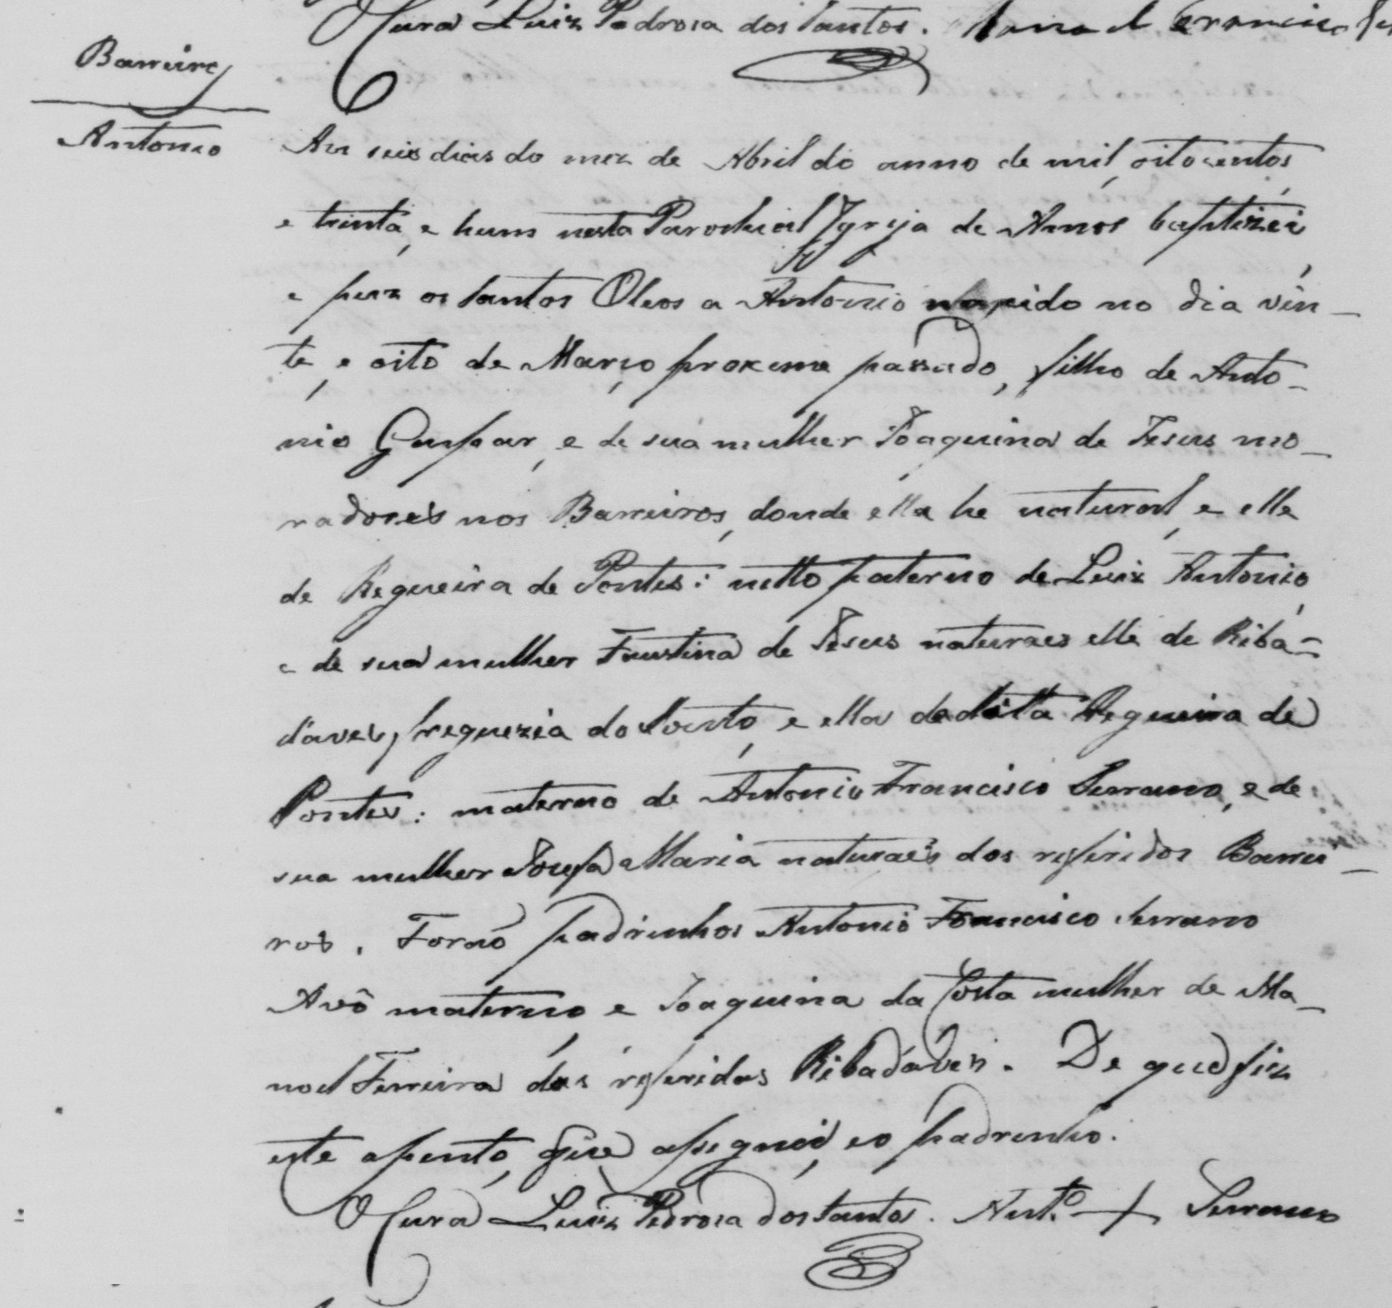 O Cura Luiz Pedroza dos Santos. Manoel Francisco
Barreiros
Antonio
Aos seis dias do mez de Abril do anno de mil, oitocentos
e trinta, e hum nesta Parochial Igreja de Amor baptizei,
e puz os Santos Oleos a Antonio nascido no dia vin-
te, e oito de Março proximo passado, filho de Anto-
nio Gaspar, e de sua mulher Joaquina de Jesus mo-
radores nos Barreiros, donde ella he natural, e elle
de Regueira de Pontes: netto paterno de Luiz Antonio,
e de sua mulher Faustina de Jesus naturaes elle de Riba-
d'aves, freguezia do Souto, e ella da ditta Regueira de
Pontes: materno de Antonio Francisco Serrano, e de
sua mulher Josefa Maria naturaes dos referidos Barrei-
ros. Forão padrinhos Antonio Francisco Serrano
Avô materno, e Joaquina da Costa mulher de Ma-
noel Ferreira das referidas Ribadáves. De que fiz
este assento, que assignei, e o padrinho.
O Cura Luiz Pedroza dos Santos. Ant.º + Serrano